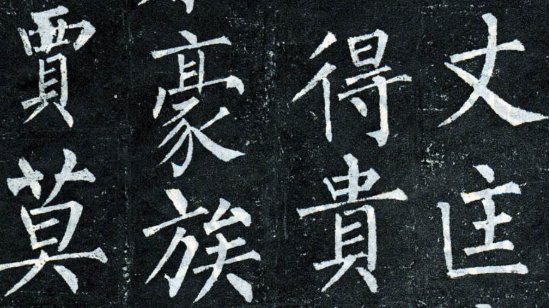 丈匡
得貴
豪族
賈莫